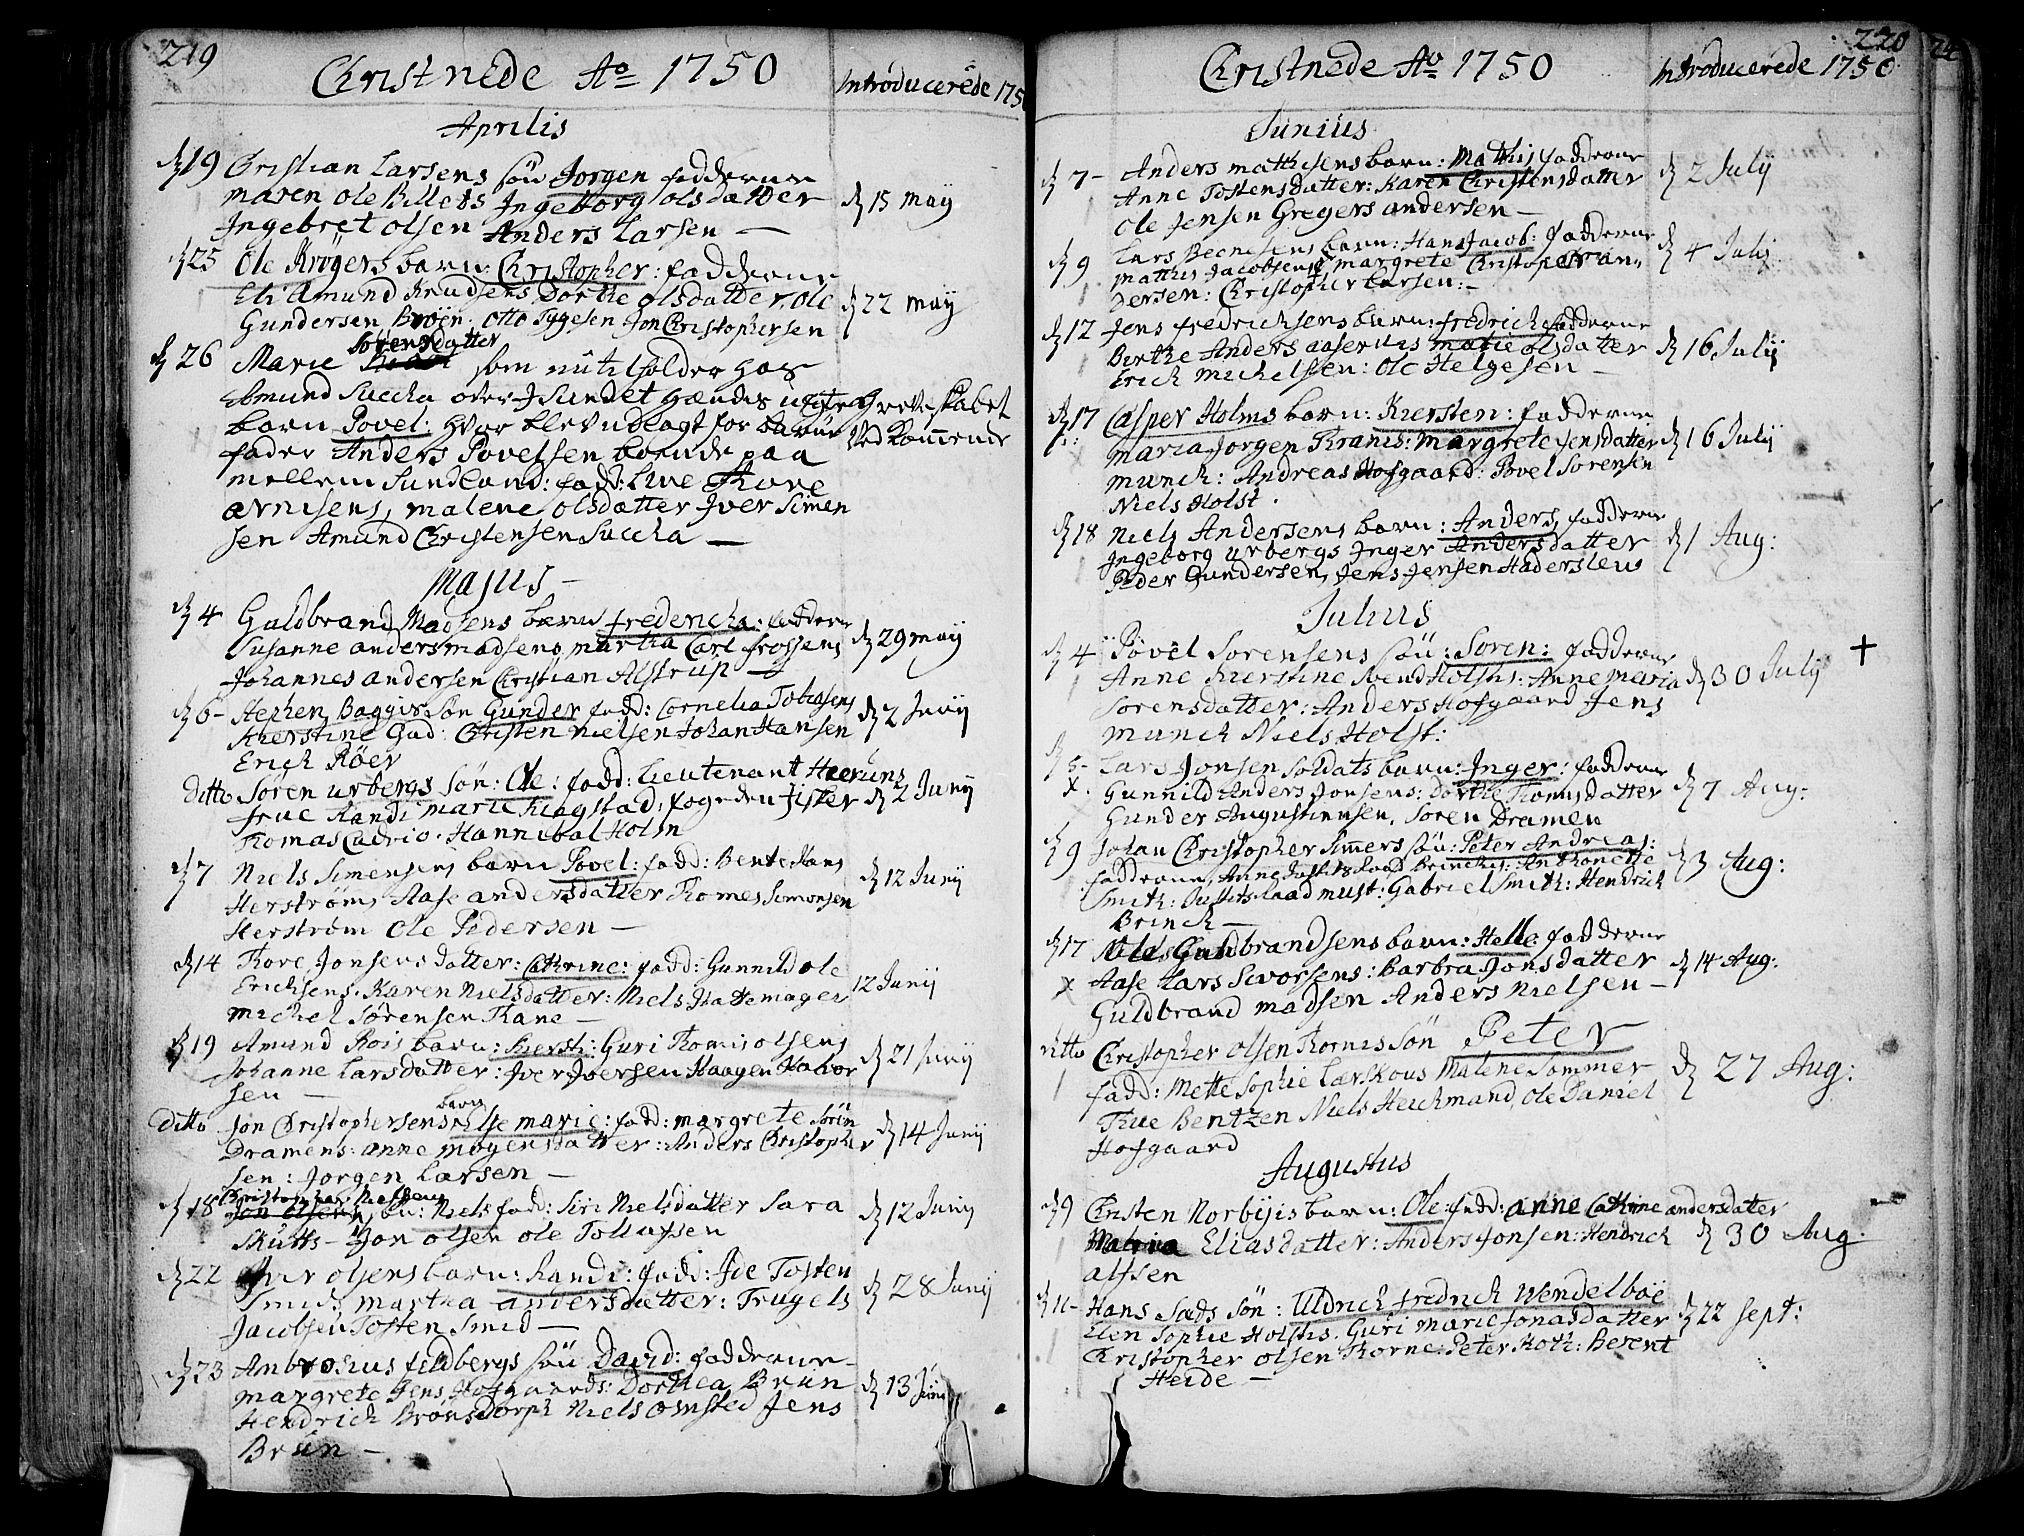 219
Christnede Ao 1750
Introducerede 175
Aprilis
19 Christian Larsens søn Jorgen fadderne
maren Ole Billets Ingeborg olsdatter
15 may
Ingebret olsen Anders Larsen —
25 Ole Krøgers barn: Christopher: fadderne
Eli Amund Knudsens, Dorthe olsdatter, ole
22 may
Gundersen Broen: Otto Tygesen Jon Christophersen
Sørensdatter
26 Marie som nu tilholder hos
Edmund Succha over I Sundet hendis uægte
Greveskabet
barn Povel: hvor blev udlagt for barne
Vedkommende
fader Anders Povelsen boende paa
mellem Sundland: fadd: Live Thore
arnisens, malene olsdatter Iver Simen
sen Amund Christensen Succha —
Majus —
4 Guldbrand Madsens barn fredericha: faddere
Susanne anders madsens, martha Carl frossens
29 may
Johannes andersen Christian Alstrup —
6 - Stephen Baggis Søn Gunder fadd: Cornelia Tobiasens
2 Junij
Kierstine Gad: Christen Nielsen Johan Hansen
Erich Röer
ditto Søren urbergs Søn: Ole: fadd: Lieutenant Heeruns
frue Randi marie Kragstad, fogeden fisker
2 Junij
Thomas Cudrio. Hannibal Holm
7 Niels Simensens barn Povel: fadd: Bente Hans
12 Junij
Herstrøms Aase andersdatter Thomes Simonsen
Herstrøm Ole Pedersen —
14 Thore Jonsens datter: Cathrine: fadd: Gunnild ole
Erichsens. Karen Nielsdatter: Niels Hattemager
12 Junij
Michel Sørensen Kane —
19 Amund Rois barn: Kiersti: Guri Thomis olsens
Johanne Larsdatter: Iver Iversen Haagen Halvor
21 Junij
sen —
barn
ditto Jon Christophersens Else marie: fadd: margrete Sørin
Dramens: anne mogensdatter: Anders Christopher
14 Junij
sen: Jorgen Larsen —
Christopher Nielsens
18 Jon olsens barn: Niels fadd: Siri Nielsdatter Sara
12 Junij
Skütts - Jon olsen ole Tollafsen
22 Iver olsens barn: Randi: fadd: Ide Tosten
Smids, martha andersdatter: Trugels
28 Junij
Jacobsen Tosten Smid —
23 Ambrosius feldbergs søn David: fadderne
margrete Jens Hofgaards: Dorthea Brun
13 Junij
Hendrich Brønsdorph Niels omsted Jens
Brün —
220
Christnede Ao 1750
Introducerede 1750
Junius
7 - Anders mathisens barn: Mathis faddderne
2 Julij
Anne Tostensdatter: Karen Christensdatter
Ole Jensen Gregers andersen —
9 Lars Berntsens barn: Hans Jacob: fadderne
4 Julij
mathis Jacobsens margrete Christopher an-
dersen: Christopher Larsen: —
12 Jens fredrichsens barn: fredrich fadderne
Berthe Anders aaseruds marie olsdatter
16 Julij
Erich michelsen: Ole Helgesen —
17 Casper Holms barn: Kiersten: fadderne
maria Jorgen Kranis: margrete Jensdatter
16 Julij
munch: Andreas Hofgaard: Povel Sorensen
Niels Holst.
18 Niels Andersens barn: Anders, fadderne
Ingeborg urbergs Inger Andersdatter
1 Aug:
Peder Gundersen, Jens Jensen Haderslevs
Julius
4 Povel Sorensens søn: Soren: fadderne
Anne Kierstine Svend Holstis: Anne maria
30 Julij
Sorensdatter: Anders Hofgaard Jens
munch Niels Holst:
5 - Lars Jonsen soldats barn: Inger: fadderne
X Gunnild Anders Jonsens: Dorthe Thomisdatter
7 Aug:
Gunder Augustinusen, Soren Dramen
9 Johan Christopher Simmers søn: Peter Andreas:
fadderne, Anne Justitsraad Brinchs: Anthonette
3 Aug:
Smith: Justitsraad must: Gabriel Smith: Hendrich
Brinch —
17 Niels Guldbrandsens barn: Helle fadderne
X Aase Lars Sivorsens: Barbra Jonsdatter
14 Aug:
Guldbrand madsen Anders Nielsen —
ditto Christopher olsen Thornes Søn Peter
fadd: Mette Sophie Larskous Malene Sommer
27 Aug:
Thue Bentzen Niels Heichmand, ole Daniel
Hofgaard
Augustus
9 Christen Norbyis barn: Ole: fadd: anne Cathrine andersdatter
Maria Eliasdatter: Anders Jonsen: Hendrich
30 Aug.
alfsen
11 - Hans Sads Søn: Uldrich fredrich Wendelboe
Elen Sophie Holstis. Guri marie Jonasdatter
22 Sept:
Christopher olsen Thorne. Peter Hoth: Berent
Heide —